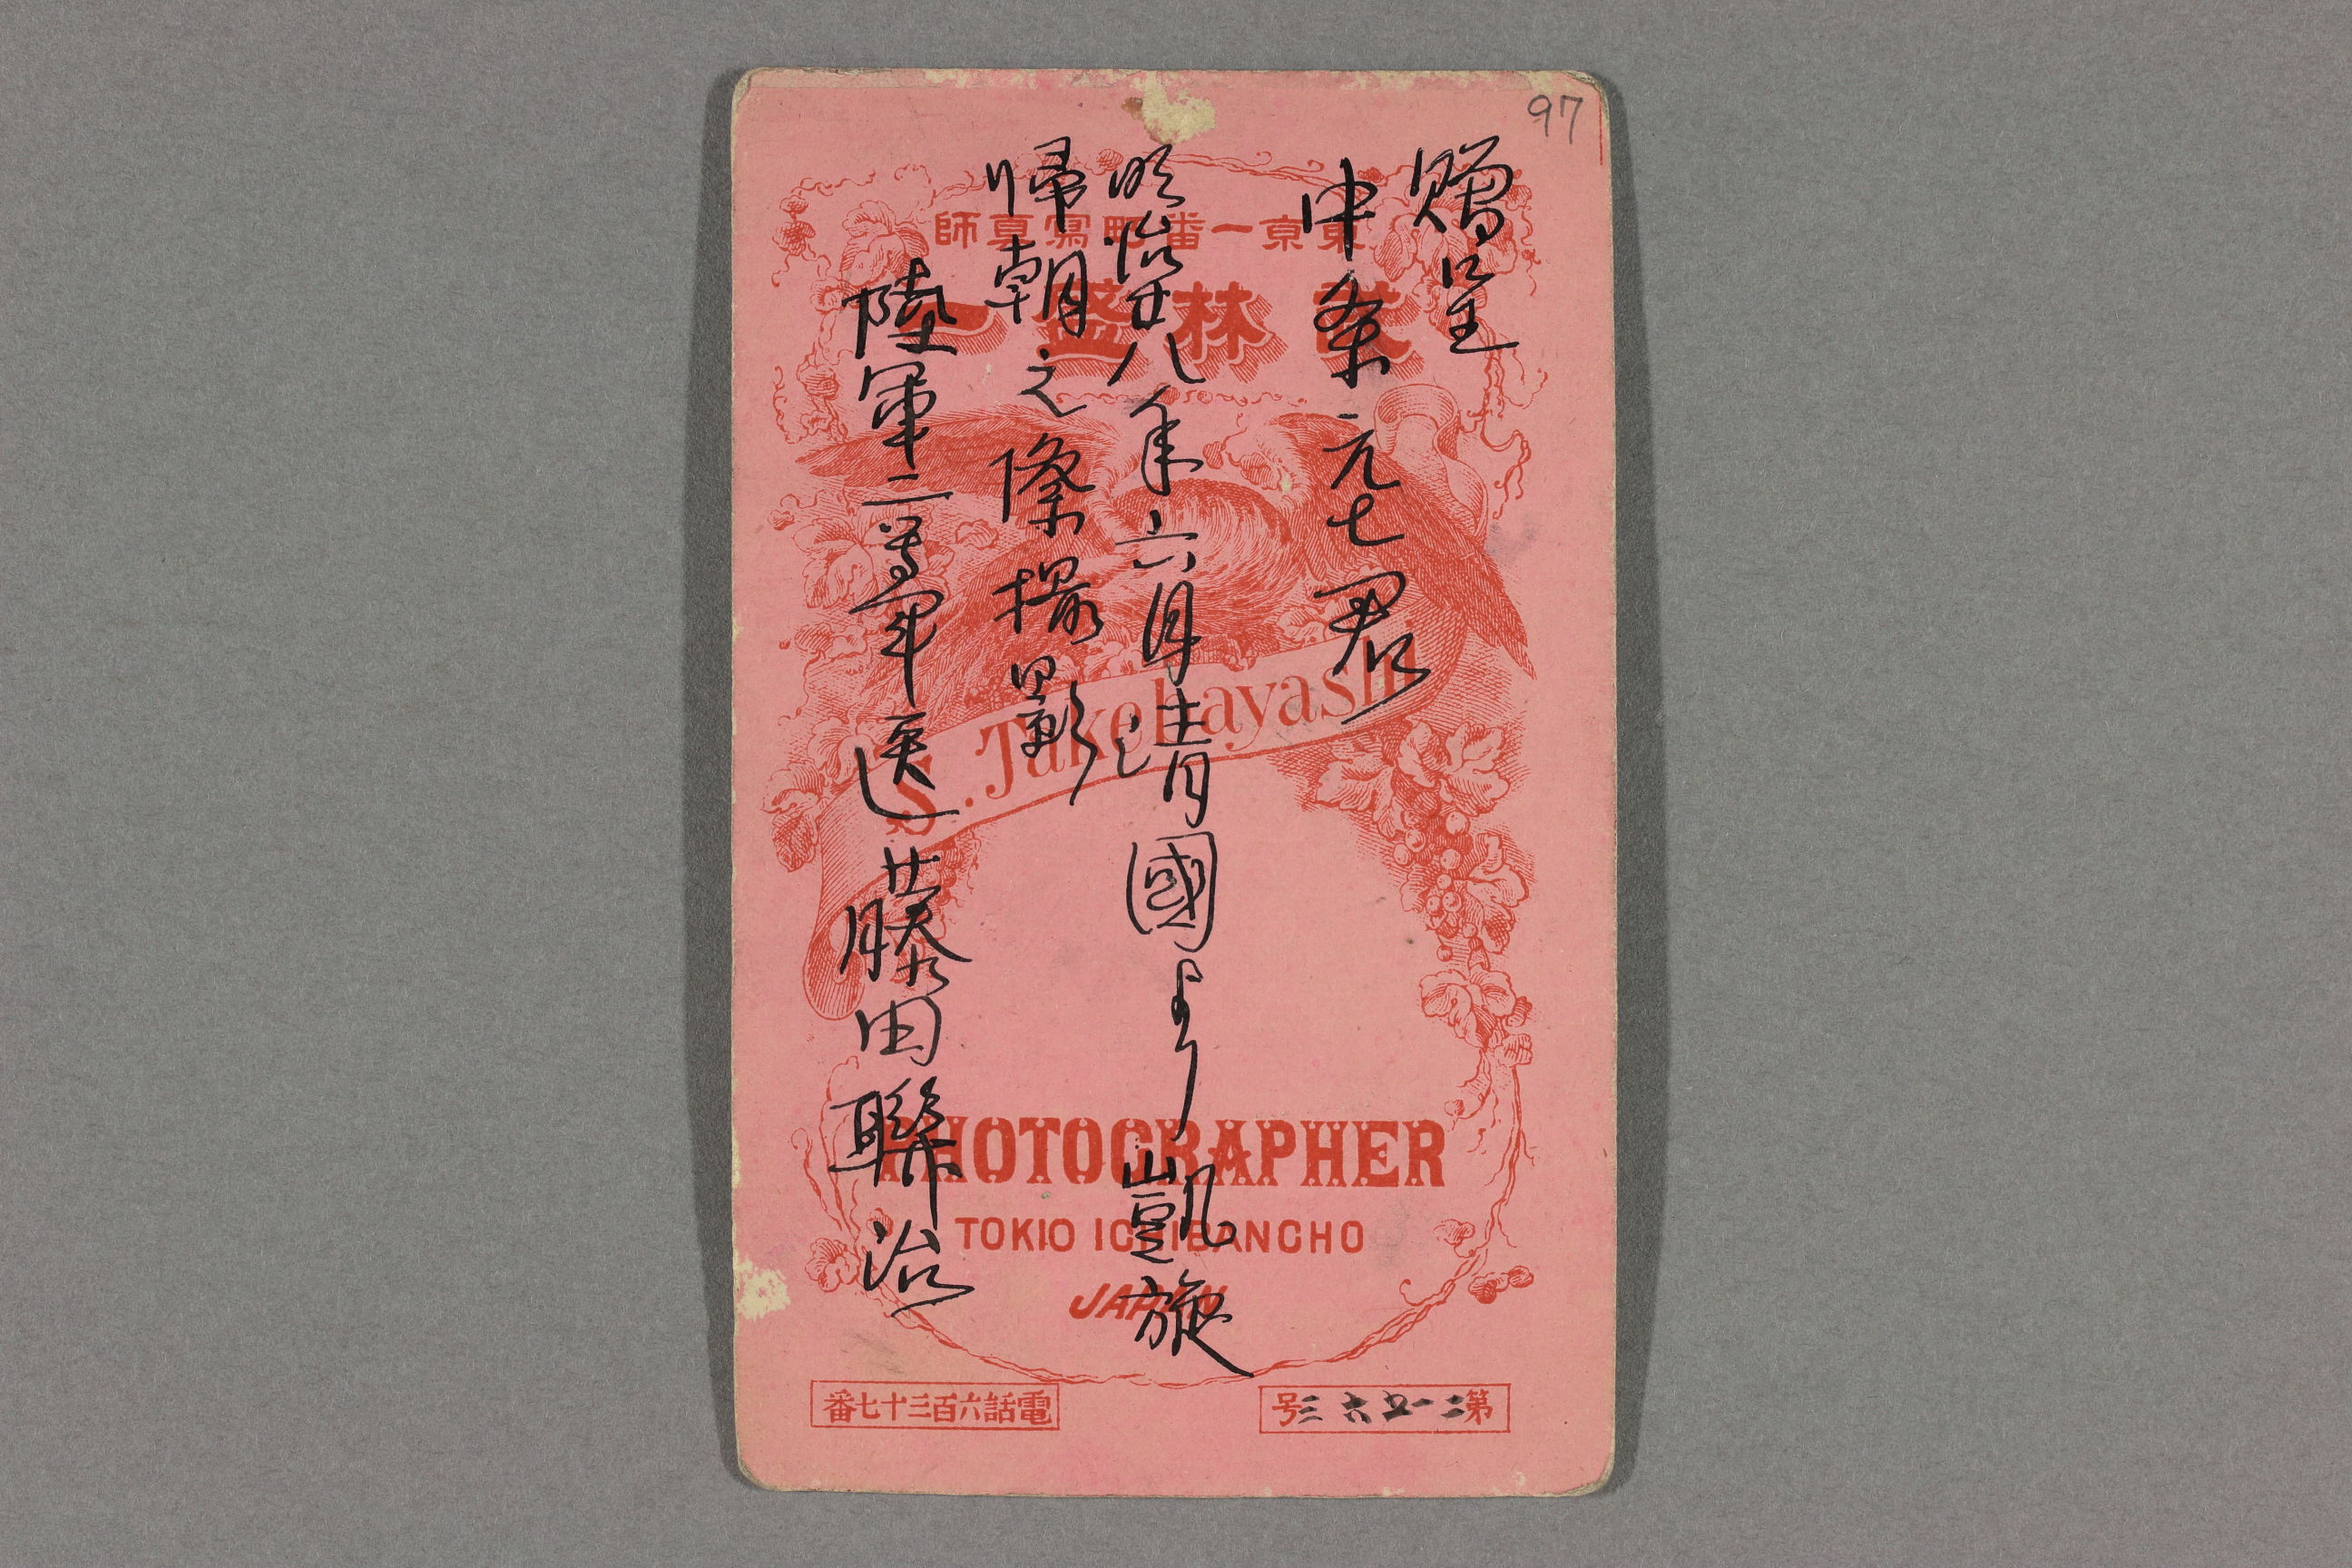 97
贈呈
中条元七君
明治廿八年六月清國より凱旋
帰朝之際撮影
陸軍二等軍医 藤田聯治
東京一番町寫真師
武林盛一
S. Takebayashi
PHOTOGRAPHER
TOKIO ICHIBANCHO
JAPAN
第二一五六三号
電話六百三十七番